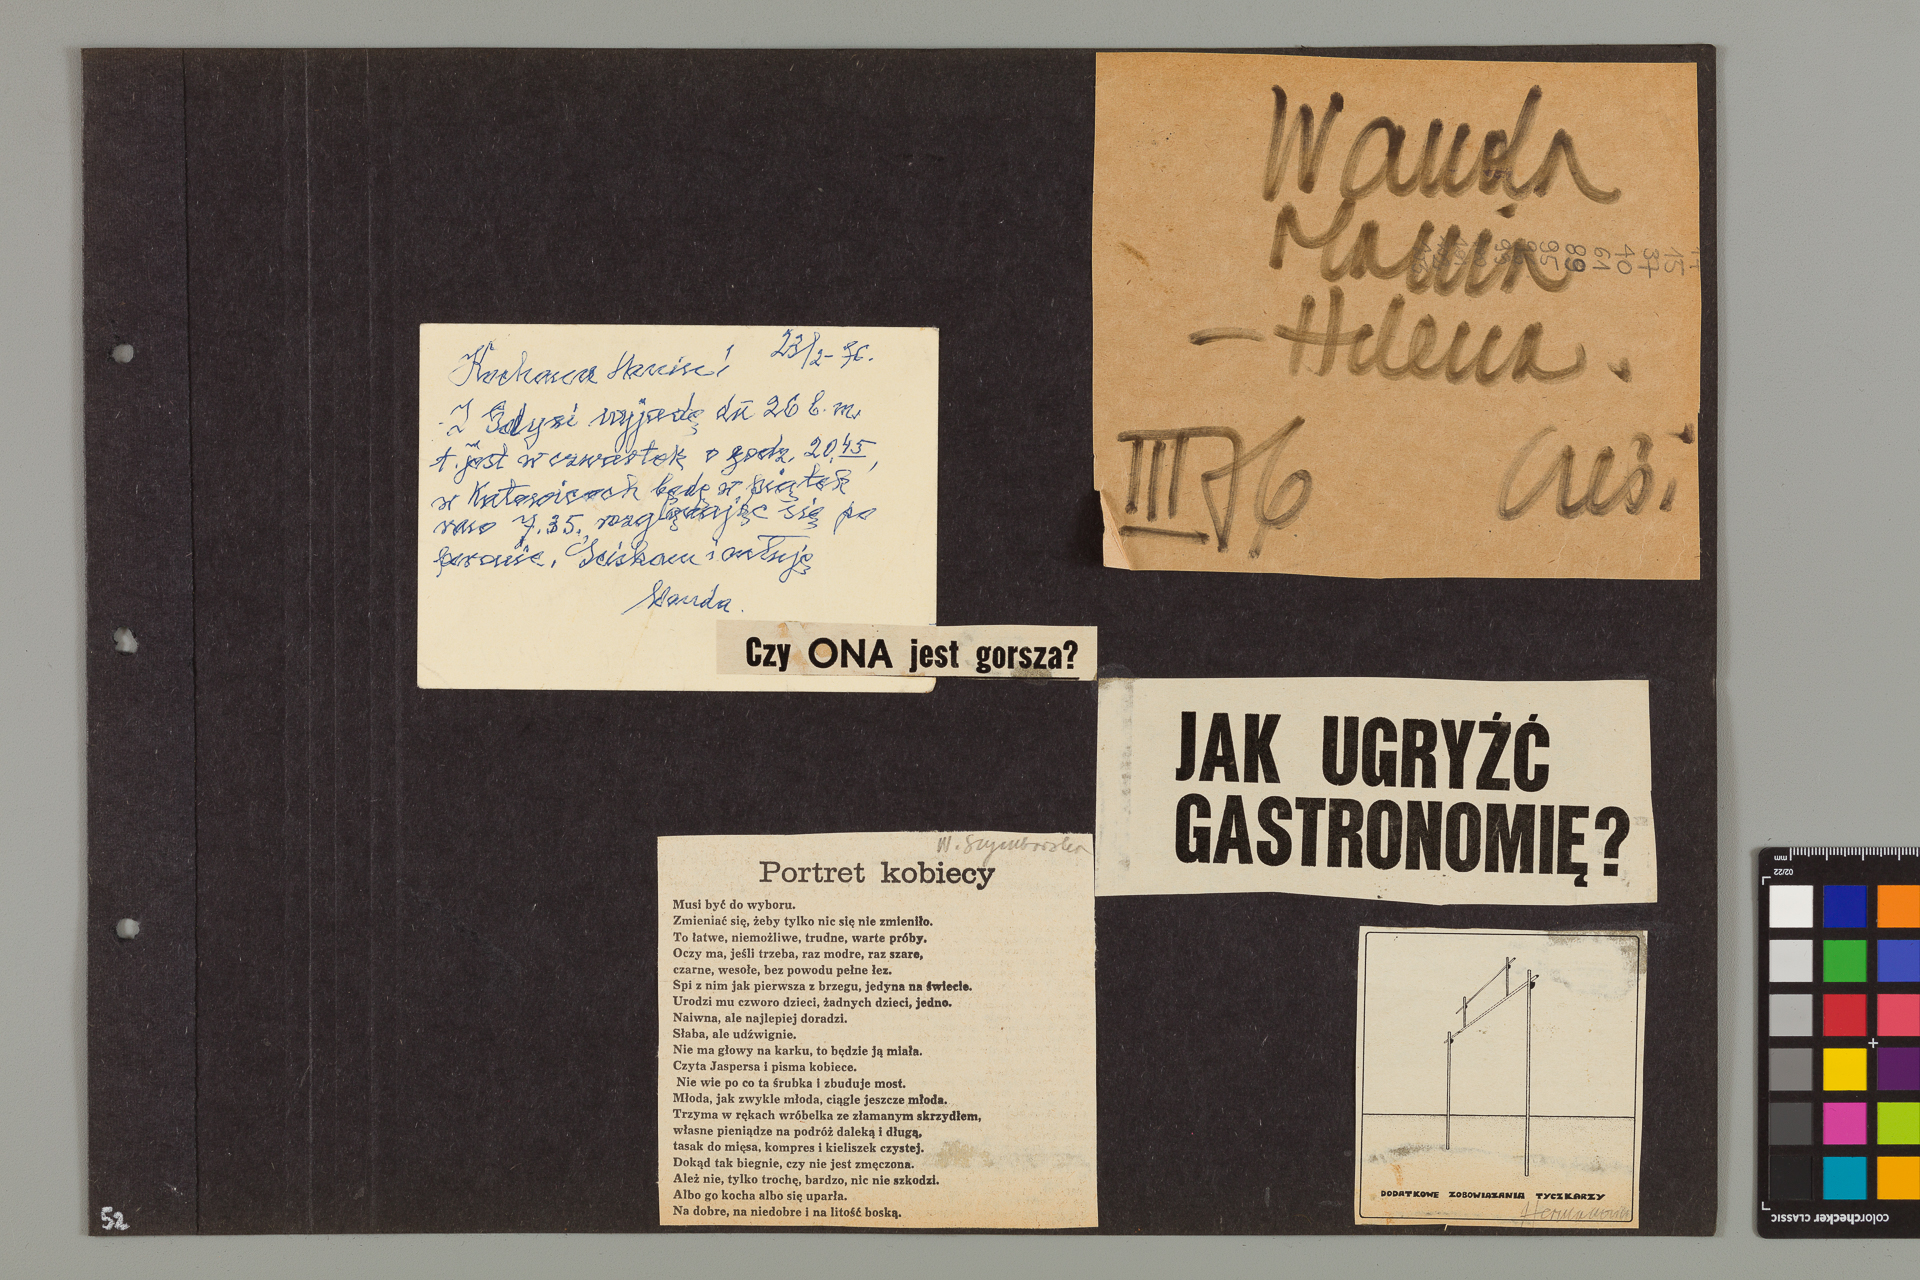 Kochana Haniu! 23/2-76.
Z Gdyni wyjadę dn 26 b.m.
t. jest w czwartek o godz. 20.45,
w Katowicach będę w piątek
rano 7.35, rozglądając się po
peronie. Ściskam i całuję
Wanda.
Wanda
Mania
- Helena.
III 76 Cieś.
15
37
40
61
89
95
Czy ONA jest gorsza?
JAK UGRYŹĆ
GASTRONOMIĘ?
W. Szymborska
Portret kobiecy
Musi być do wyboru.
Zmieniać się, żeby tylko nic się nie zmieniło.
To łatwe, niemożliwe, trudne, warte próby.
Oczy ma, jeśli trzeba, raz modre, raz szare,
czarne, wesołe, bez powodu pełne łez.
Spi z nim jak pierwsza z brzegu, jedyna na świecie.
Urodzi mu czworo dzieci, żadnych dzieci, jedno.
Naiwna, ale najlepiej doradzi.
Słaba, ale udźwignie.
Nie ma głowy na karku, to będzie ją miała.
Czyta Jaspersa i pisma kobiece.
Nie wie po co ta śrubka i zbuduje most.
Młoda, jak zwykle młoda, ciągle jeszcze młoda.
Trzyma w rękach wróbelka ze złamanym skrzydłem,
własne pieniądze na podróż daleką i długą,
tasak do mięsa, kompres i kieliszek czystej.
Dokąd tak biegnie, czy nie jest zmęczona.
Ależ nie, tylko trochę, bardzo, nic nie szkodzi.
Albo go kocha albo się uparła.
Na dobre, na niedobre i na litość boską.
DODATKOWE ZOBOWIĄZANIA TYCZKARZY
52
mm
02/22
colorchecker CLASSIC